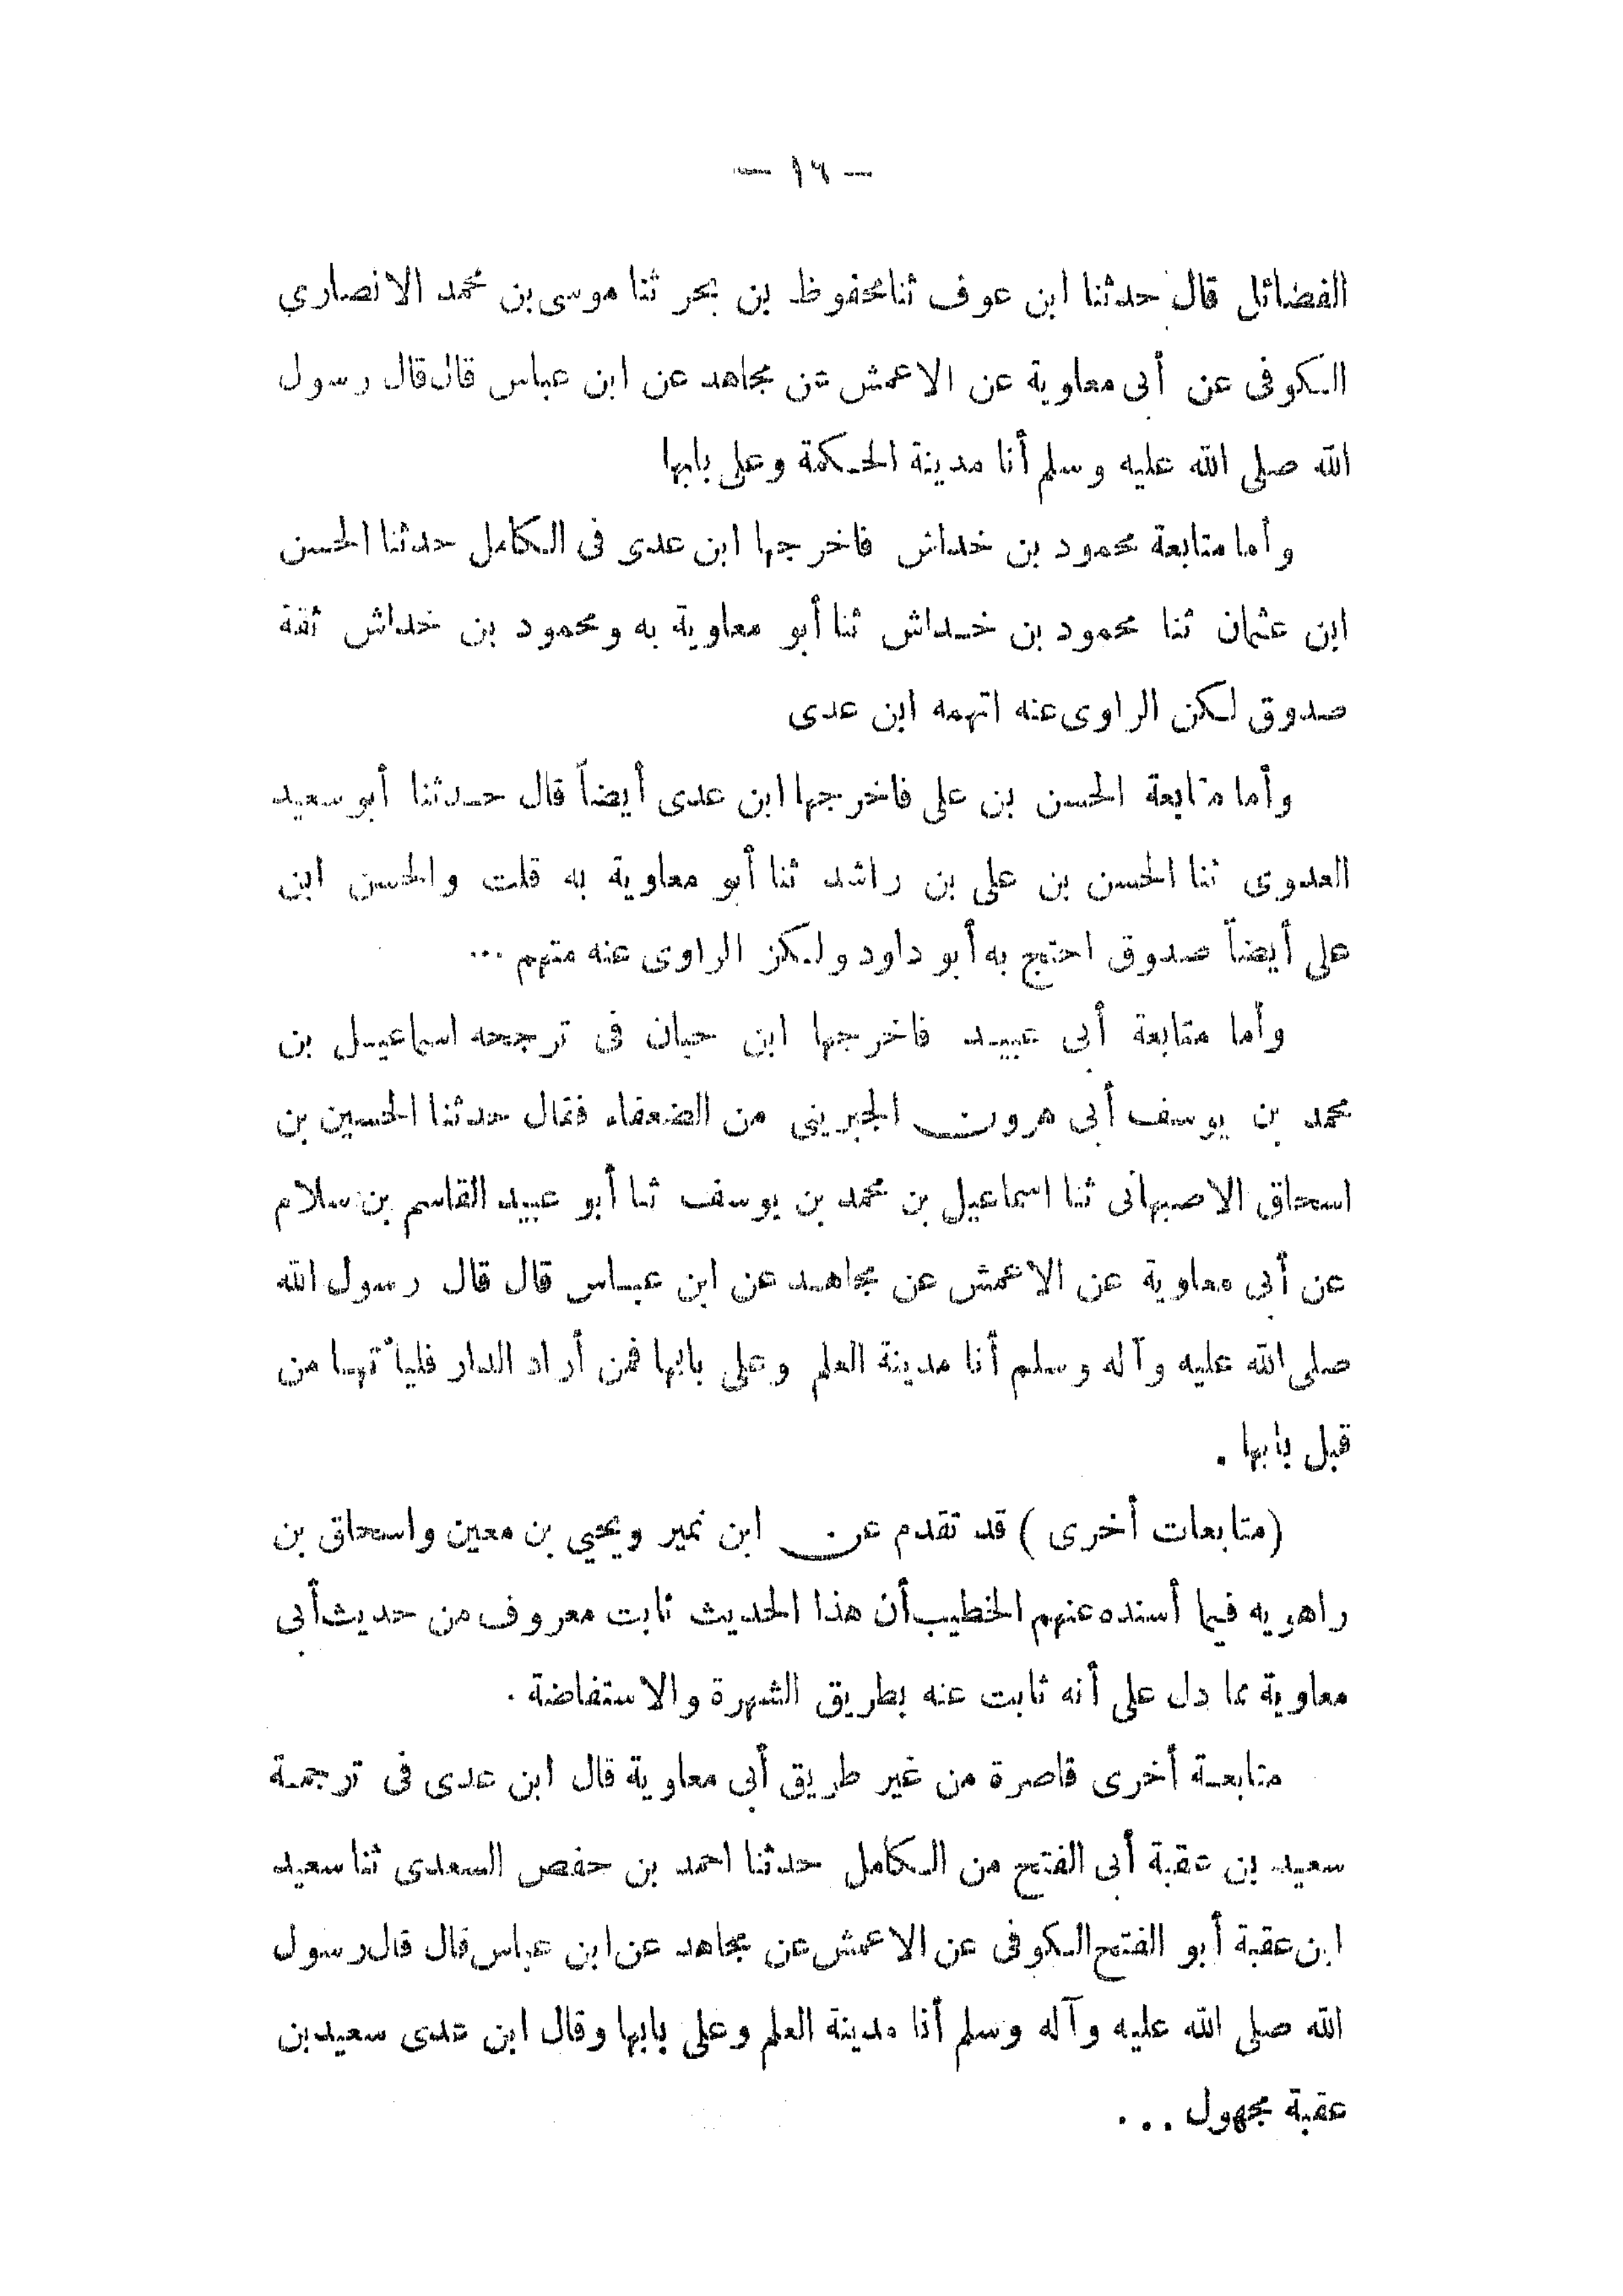 — ١٦ —
الفضائل قال حدثنا ابن عوف ثنا محفوظ بن بحر ثنا موسى بن محمد الانصارى
الكوفى عن أبى معاوية عن الاعمش عن مجاهد عن ابن عباس قال قال رسول
الله صلى الله عليه وسلم أنا مدينة الحكمة وعلى بابها
وأما متابعة محمود بن خداش فاخرجها ابن عدى فى الكامل حدثنا الحسن
ابن عثمان ثنا محمود بن خداش ثنا أبو معاوية به ومحمود بن خداش ثقة
صدوق لكن الراوى عنه اتهمه ابن عدى
وأما متابعة الحسن بن على فاخرجها ابن عدى أيضاً قال حدثنا أبو سعيد
العدوى ثنا الحسن بن على بن راشد ثنا أبو معاوية به قلت والحسن ابن
على أيضاً صدوق احتج به أبو داود ولكن الراوى عنه متهم ...
وأما متابعة أبى عبيد فاخرجها ابن حبان فى ترجحه اسماعيل بن
محمد بن يوسف أبى هرون الجبرينى من الضعفاء فقال حدثنا الحسين بن
اسحاق الاصبهانى ثنا اسماعيل بن محمد بن يوسف ثنا أبو عبيد القاسم بن سلام
عن أبى معاوية عن الاعمش عن مجاهد عن ابن عباس قال قال رسول الله
صلى الله عليه وآله وسلم أنا مدينة العلم وعلى بابها فمن أراد الدار فليأتها من
قبل بابها .
(متابعات أخرى ) قد تقدم عن ابن نمير ويحيي بن معين واسحاق بن
راهويه فيما أسنده عنهم الخطيب أن هذا الحديث ثابت معروف من حديث أبى
معاوية مما دل على أنه ثابت عنه بطريق الشهرة والاستفاضة .
متابعة أخرى قاصرة من غير طريق أبى معاوية قال ابن عدى فى ترجمة
سعيد بن عقبة أبى الفتح من الكامل حدثنا احمد بن حفص السعدى ثنا سعيد
ابن عقبة أبو الفتح الكوفى عن الاعمش عن مجاهد عن ابن عباس قال قال رسول
الله صلى الله عليه وآله وسلم أنا مدينة العلم وعلى بابها وقال ابن عدى سعيد بن
عقبة مجهول ...